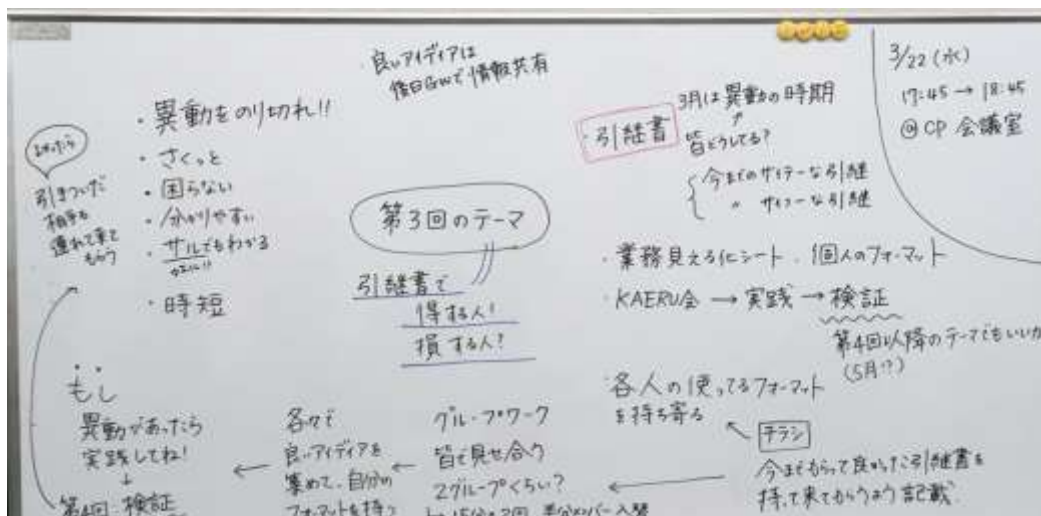 ・良いアイディアは
後日GWで情報共有
・異動をのり切れ!!
・さくっと
・困らない
・分かりやすい
・サルでもわかる
・時短
引きついだ
相手も
連れて来て
もらう
第3回のテーマ
引継書で
得する人!
損する人!
3/22(水)
17:45→18:45
@CP 会議室
3月は異動の時期
・引継書
皆どうしてる?
今までのサイテーな引継
〃 サイコーな引継
・業務見える化シート、個人のフォーマット
・KAERU会→実践→検証
第4回以降のテーマでもいいか
(5月!?)
・各人の使ってるフォーマット
を持ち寄る
チラシ
今までもらって良かった引継書を
持って来てもらうよう記載
グループワーク
皆で見せ合う
2グループくらい?
15分×2回
各々で
良いアイディアを
集めて、自分の
フォーマットを持つ
もし
異動があったら
実践してね!
↓
第4回 検証